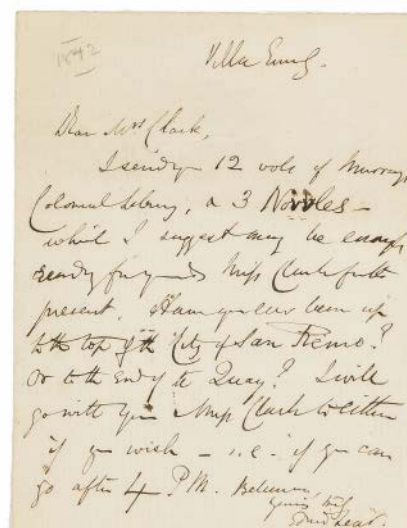 1842
Villa Emily.
Dear Mrs Clark,
I send you 12 vols of Murray's
Colonial Library, & 3 Novvles –
which I suggest may be enough
ready for you & Miss Clark for the
present. Have you ever been up
to the top of the City of San Remo?
or to the end of the Quay? I will
go with you & Miss Clark to either
if you wish – i.e. if you can
go after 4 P.M. Believe me,
Yours truly
Edward Lear.